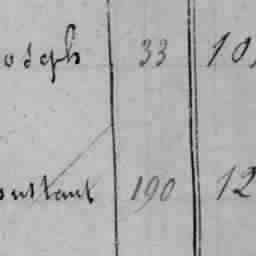 oseph 33 10,
onstant 190 12